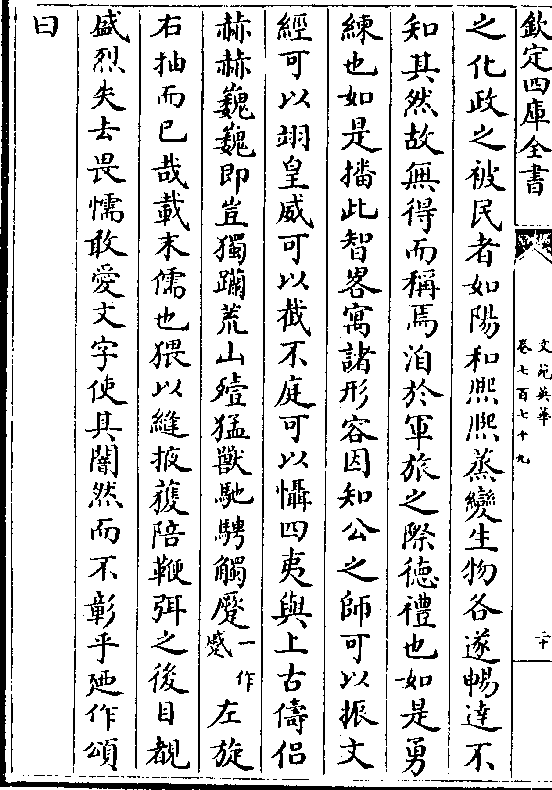 欽定四庫全書
文苑英華
卷七百七十九
二十
之化政之被民者如陽和熙熙蒸變生物各遂暢達不
知其然故無得而稱焉洎於軍旅之際德禮也如是勇
練也如是播此智畧寓諸形容因知公之師可以振文
經可以翊皇威可以截不庭可以懾四夷與上古儔侣
赫赫巍巍即豈獨躪荒山殪猛獸馳騁觸蹙一作蹙左旋
右抽而已哉載末儒也猥以縫掖獲陪鞭弭之後目覩
盛烈失去畏懦敢愛文字使其闇然而不彰乎廼作頌
曰